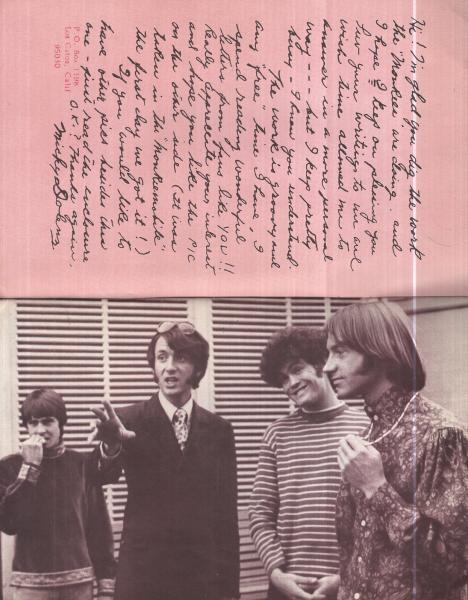 Hi! I'm glad you dig the work
the "Monkees" are doing.. and
I hope I keep on pleasing you
Luv your writings to me and
wish time allowed me to
answer in a more personal
way -- but I keep pretty
busy -- I know you understand.
The work is groovy and
any "free" time I have I
spend reading wonderful
letters from fans like YOU!!
Really appreciate your interest
and hope you like the pic
on the other side (It was
taken in the Monkeemobile
the first day we got it!)
If you would like to
have other pics besides this
one - just read the enclosure
O.K.? Thanks again,
Micky Dolenz
P.O. Box 1198
Los Gatos, Calif
95030